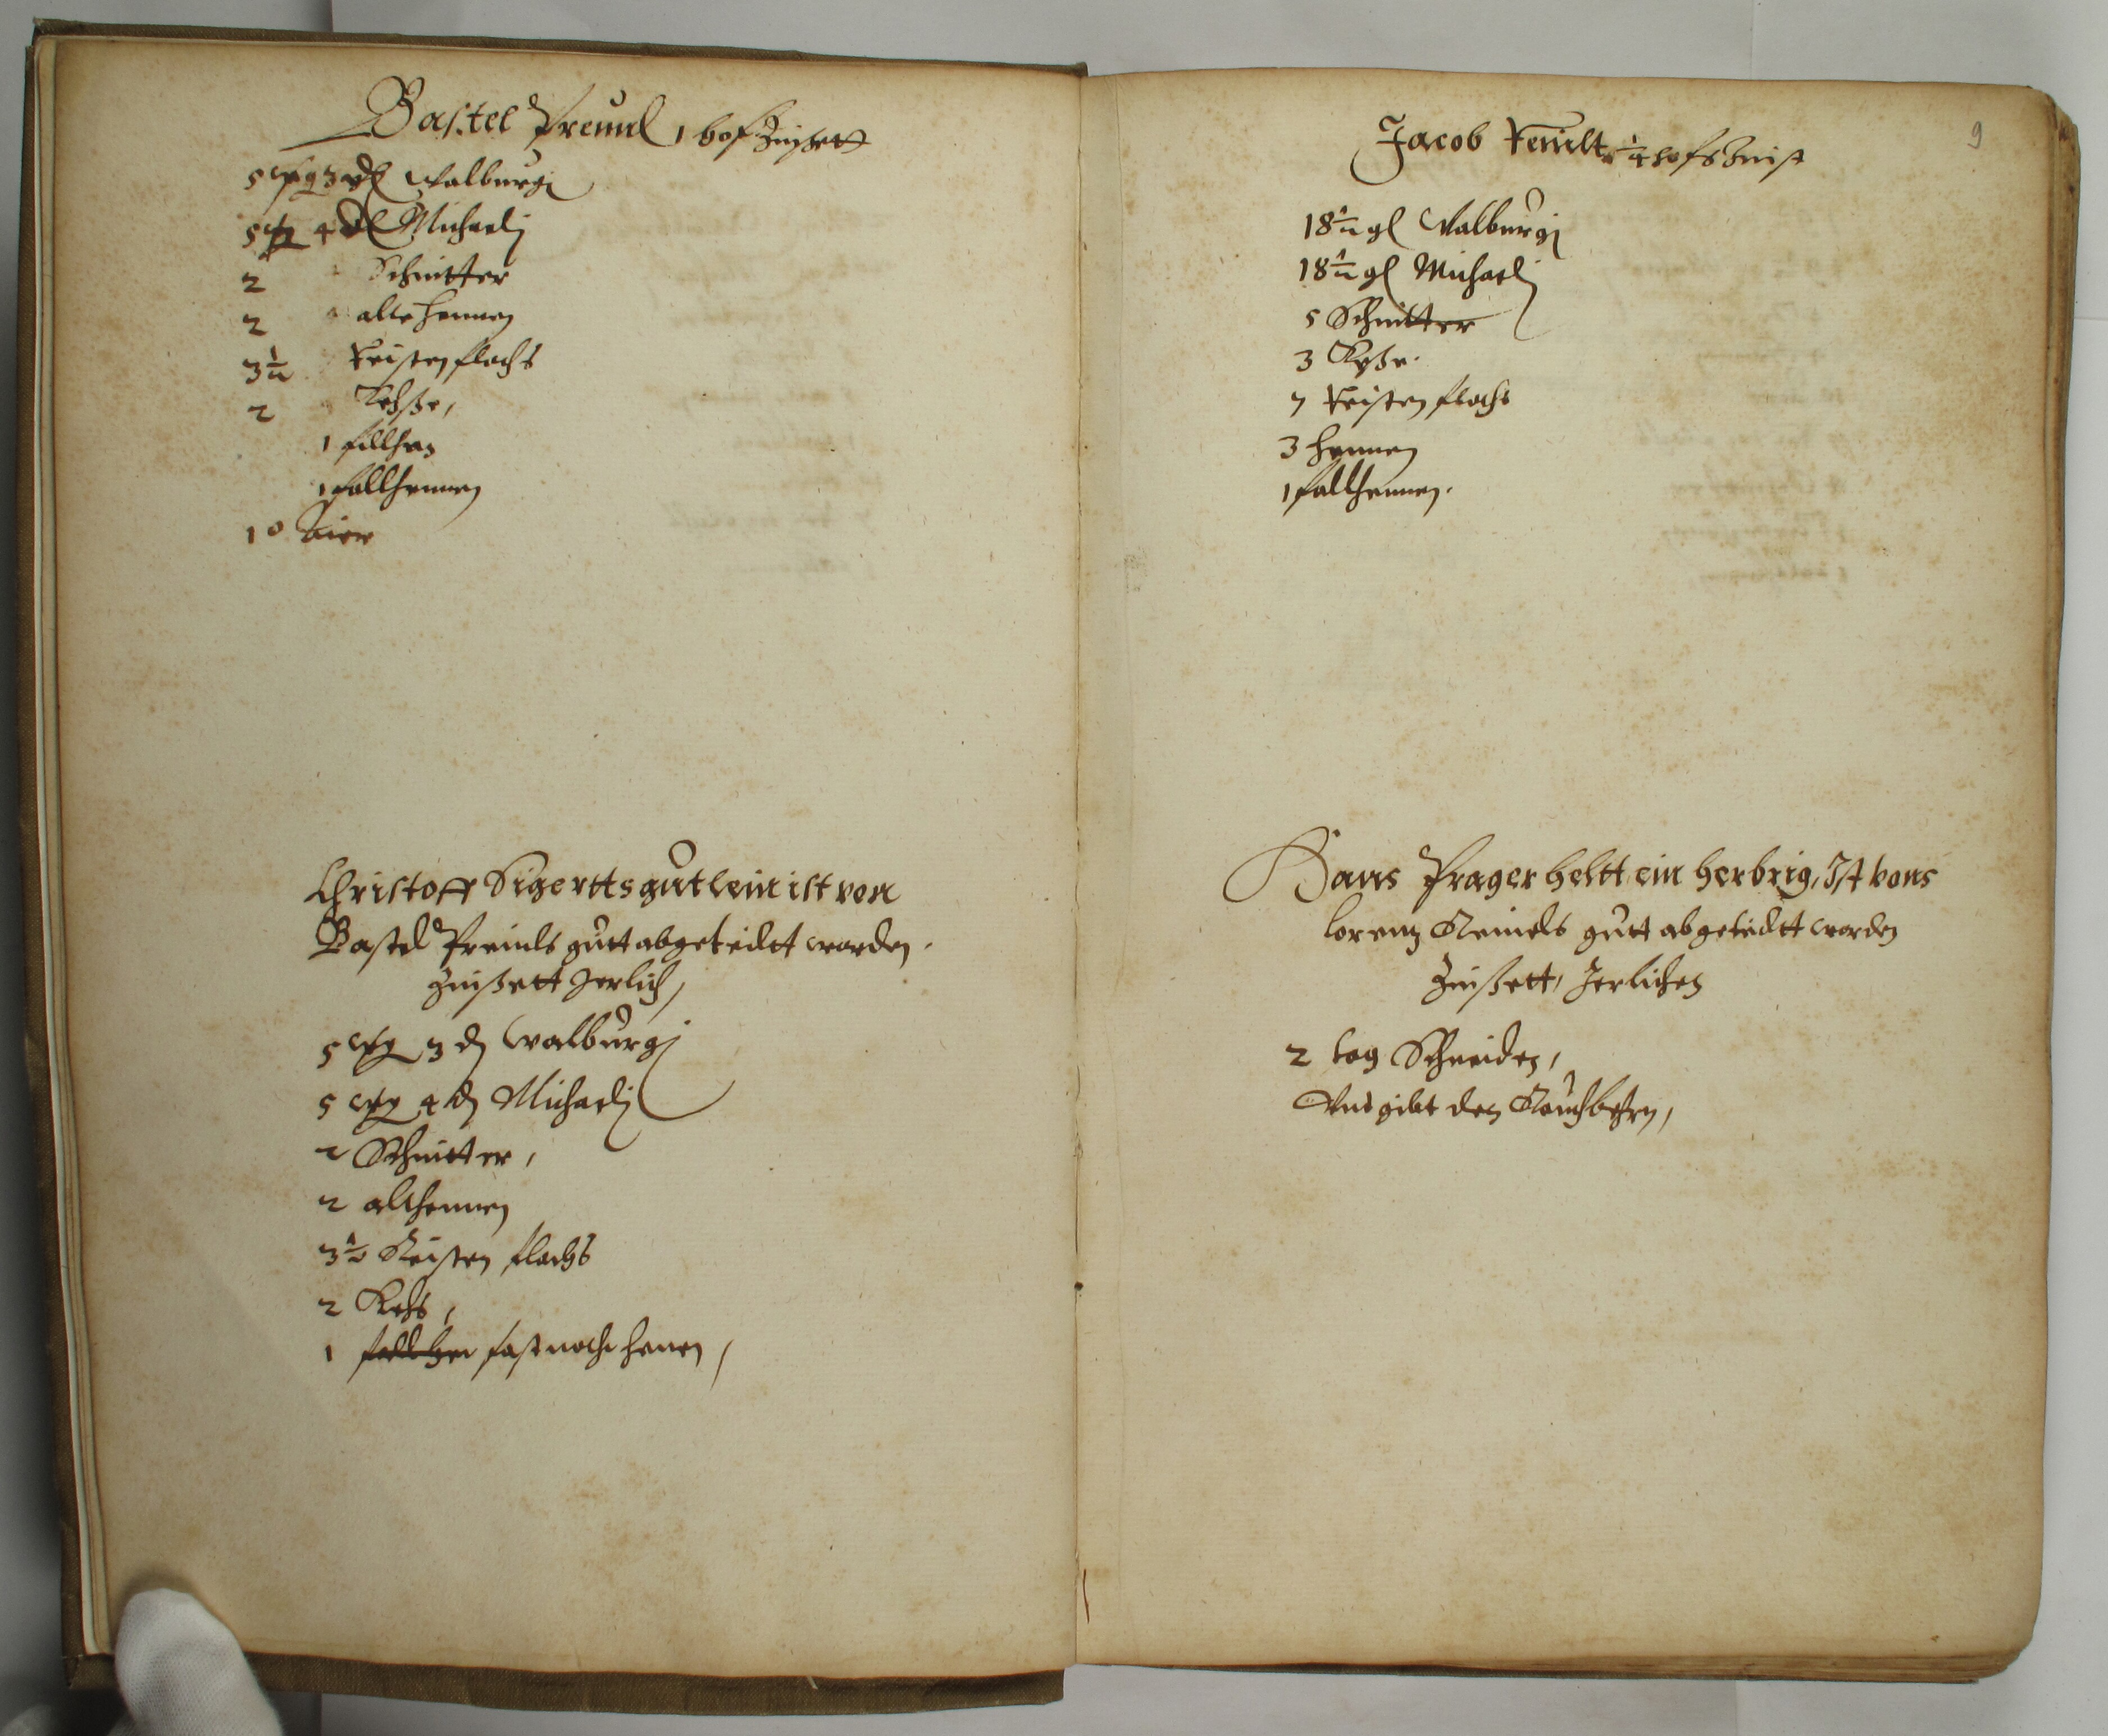 Bastel Preunl 1 hof Zinsett
5 3 Walburgi
5 4 Michaeli
2 Schnitter
2 alte hennen
3 1/2 Reisten flachs
2 Kehße,
1 fallhan
1 fallhennen
10 Aier
Christoff Sigertts gutlein ist von
Bastel Preinls gutt abgeteiltt worden.
Zinßett Jerlich,
5 3 d Walburgi
5 4 d Michaeli
2 Schnitter,
2 althennen
3 1/2 Reisten flachs
2 Kehs,
1 fastnacht henen,
9
Jacob 1/4 hofs Zinst
18 1/2 gl Walburgi
18 1/2 gl Michaeli
5 Schnitter
3 Keße.
7 Reisten flachs
3 hennen
1 fallhennen.
Hans Prager heltt ein herbrig, Ist vons
lorentz Reinels gutt abgeteiltt worden
Zinßett, Jerlichen
2 tag Schneiden,
Und gibt den